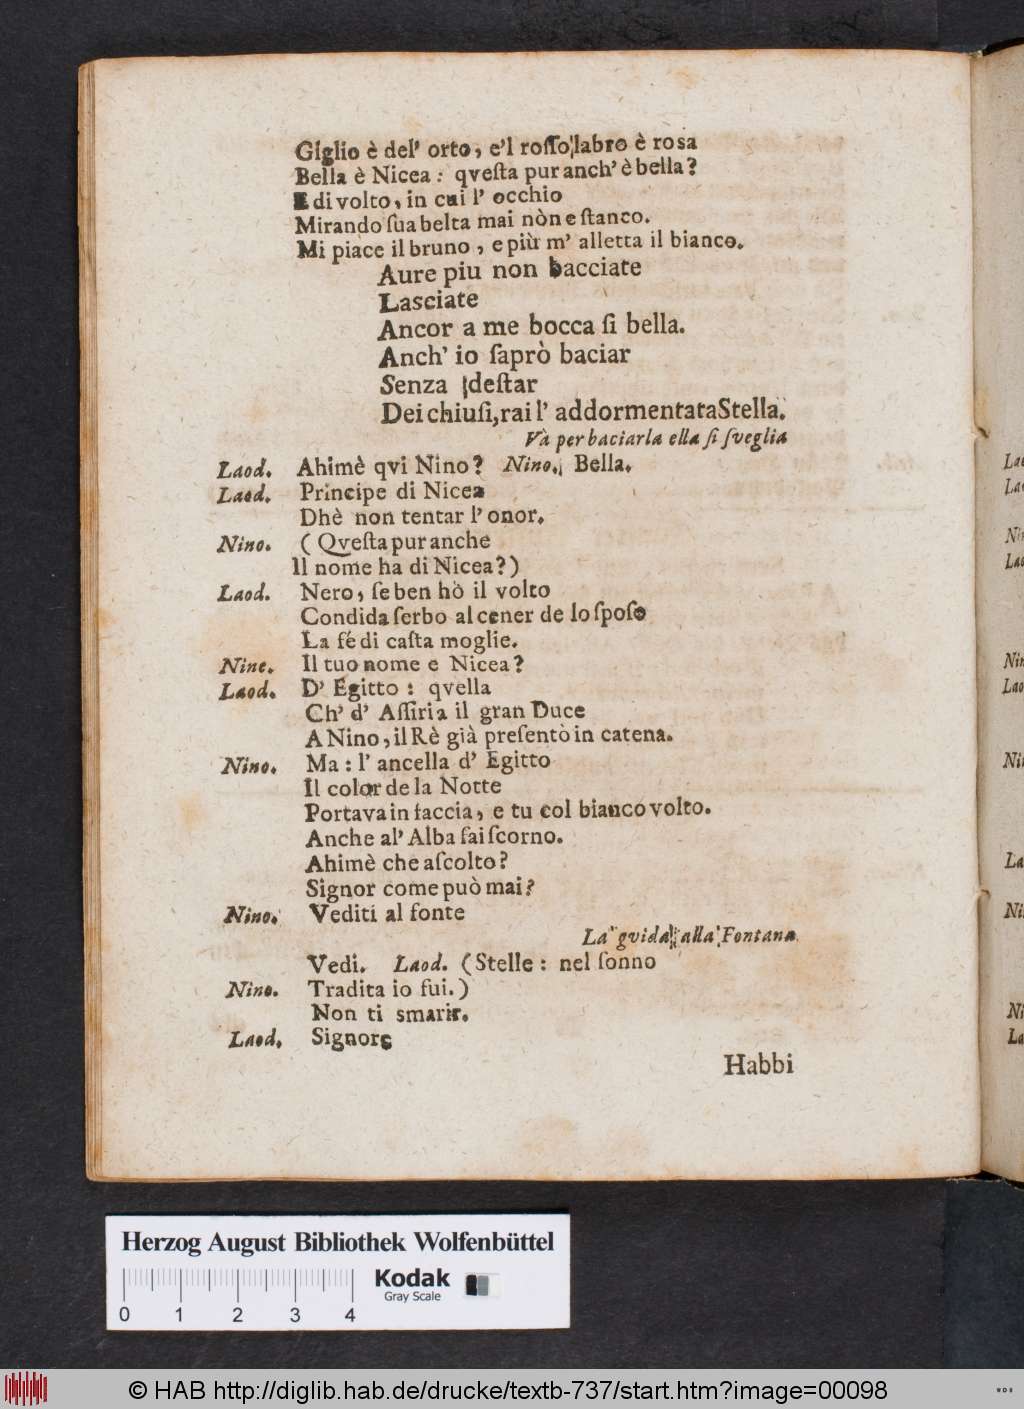 Giglio è del' orto, e'l roſſo labro è rosa
Bella è Nicea: qveſta pur anch' è bella?
E di volto, in cui l' occhio
Mirando ſua belta mai nòn e ſtanco.
Mi piace il bruno, e più m' alletta il bianco.
Aure piu non bacciate
Lasciate
Ancor a me bocca ſi bella.
Anch' io ſaprò baciar
Senza deſtar
Dei chiuſi, rai l' addormentata Stella.
Và per baciarla ella ſi ſveglia
Laod. Ahimè qvi Nino? Nino. Bella.
Laod. Principe di Nicea
Dhè non tentar l' onor.
Nino. (Qveſta pur anche
Il nome ha di Nicea?)
Laod. Nero, ſe ben hò il volto
Condida ſerbo al cener de lo ſpoſo
La fé di caſta moglie.
Nine. Il tuo nome e Nicea?
Laod. D' Egitto: qvella
Ch' d' Aſſiria il gran Duce
A Nino, il Rè già preſentò in catena.
Nino. Ma: l' ancella d' Egitto
Il color de la Notte
Portava in faccia, e tu col bianco volto.
Anche al' Alba fai ſcorno.
Ahimè che aſcolto?
Signor come può mai?
Nino. Vediti al fonte
La gvida alla Fontana
Vedi. Laod. (Stelle: nel ſonno
Nino. Tradita io fui.)
Non ti smarir.
Laod. Signore
Habbi
Lao
Lao
Nin
Lao
Nin
Lao
Nin
La
Ni
Ni
La
Herzog August Bibliothek Wolfenbüttel
0 1 2 3 4
Kodak
Gray Scale
© HAB http://diglib.hab.de/drucke/textb-737/start.htm?image=00098